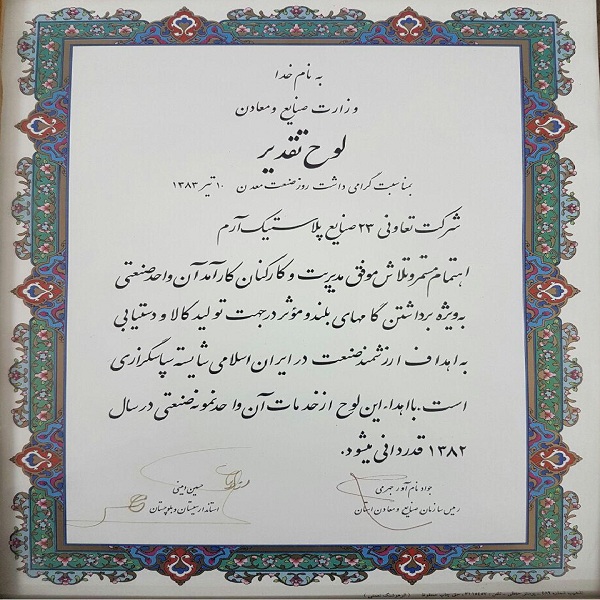 به نام خدا
وزارت صنایع و معادن
لوح تقدیر
بمناسبت گرامی داشت روز صنعت معدن ۱۰ تیر ۱۳۸۳
شرکت تعاونی ۲۳ صنایع پلاستیک آرم
اهتمام مستمر و تلاش موفق مدیریت و کارکنان کارآمد آن واحد صنعتی
به ویژه برداشتن گامهای بلند و مؤثر در جهت تولید کالا و دستیابی
به اهداف ارزشمند صنعت در ایران اسلامی شایسته سپاسگزاری
است. با اهداء این لوح از خدمات آن واحد نمونه صنعتی در سال
۱۳۸۲ قدردانی میشود.
جواد نام آور جهری
رییس سازمان صنایع و معادن استان
حسین امینی
استاندار سیستان و بلوچستان